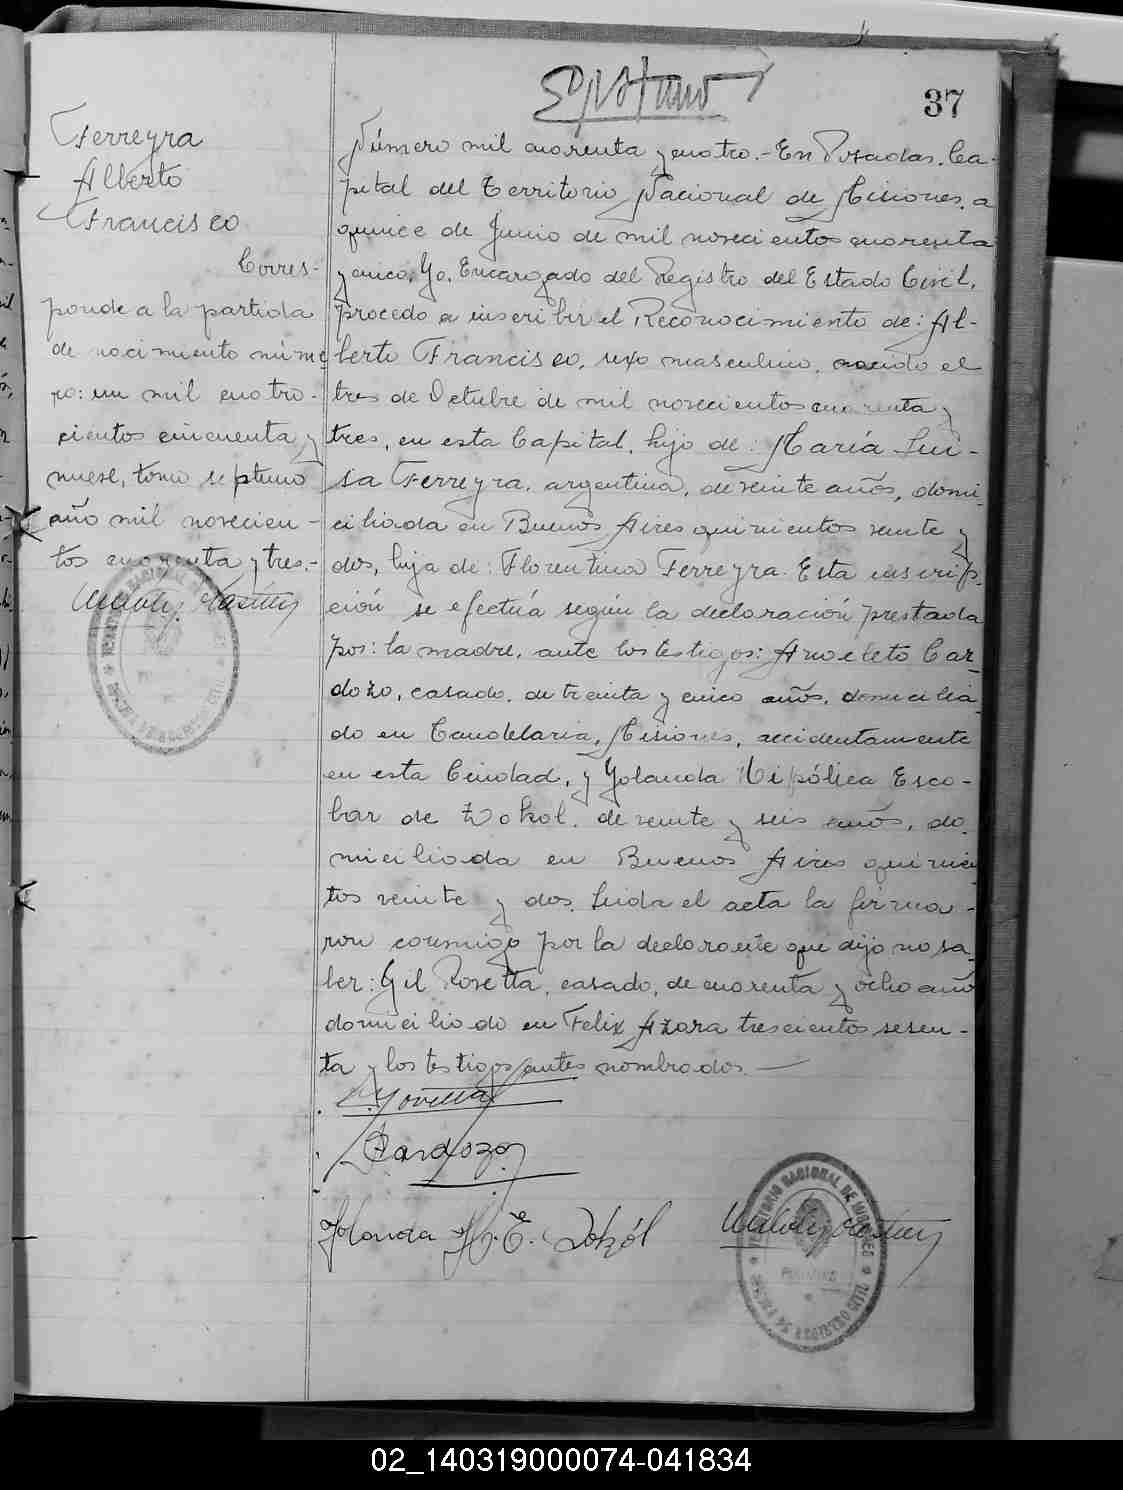 37
Ferreyra
Alberto
Francisco
Corres-
ponde a la partida
de nacimiento núme
ro: un mil cuatro-
cientos cincuenta y
nueve, tomo septimo
año mil novecien-
tos cuarenta y tres.-
Número mil cuarenta y cuatro.- En Posadas, Ca-
pital del Territorio Nacional de Misiones, a
quince de Junio de mil novecientos cuarenta
y cinco, Yo, Encargado del Registro del Estado Civil,
procedo a inscribir el Reconocimiento de: Al-
berto Francisco, sexo masculino, nacido el
tres de Octubre de mil novecientos cuarenta y
tres, en esta Capital, hijo de: María Lui-
sa Ferreyra, argentina, de veinte años, domi-
ciliada en Buenos Aires quinientos veinte y
dos, hija de: Florentina Ferreyra. Esta inscrip-
ción se efectúa según la declaración prestada
por: la madre, ante los testigos: Anacleto Car-
dozo, casado, de treinta y cinco años, domicilia-
do en Candelaria, Misiones, accidentamente
en esta Ciudad, y Yolanda Hipólica Esco-
bar de Zokol, de veinte y seis años, do
miciliada en Buenos Aires quinien
tos veinte y dos. Leida el acta la firma-
ron conmigo por la declarante que dijo no sa-
ber: Gil Rosetta, casado, de cuarenta y ocho años
domiciliado en Felix Azara trescientos sesen-
ta y los testigos antes nombrados.-
Cardozo
Yolanda H. E. Zokól
TERRITORIO NACIONAL DE MISIONES
02_140319000074-041834